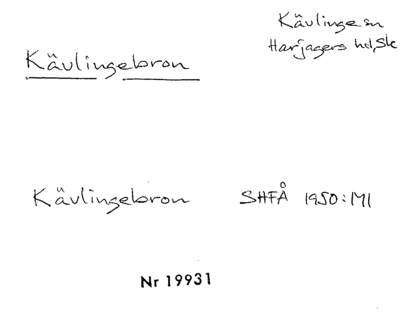 Kävlinge sn
Harjagers hd, Sk
Kävlingebron
Kävlingebron SHFÅ 1950:171
Nr 19931